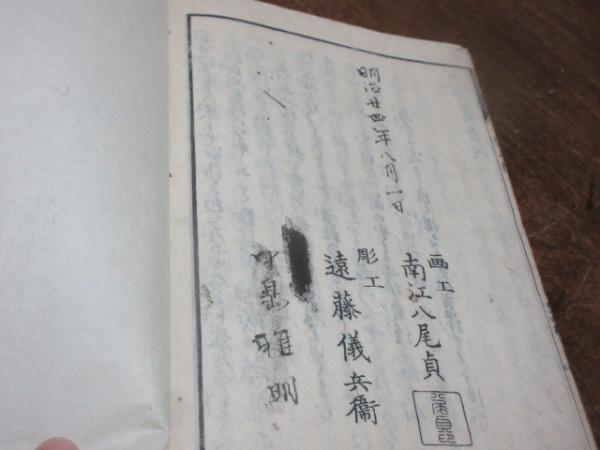 画工
南江八尾貞
明治廿四年八月一日
彫工
遠藤儀兵衞
雅明